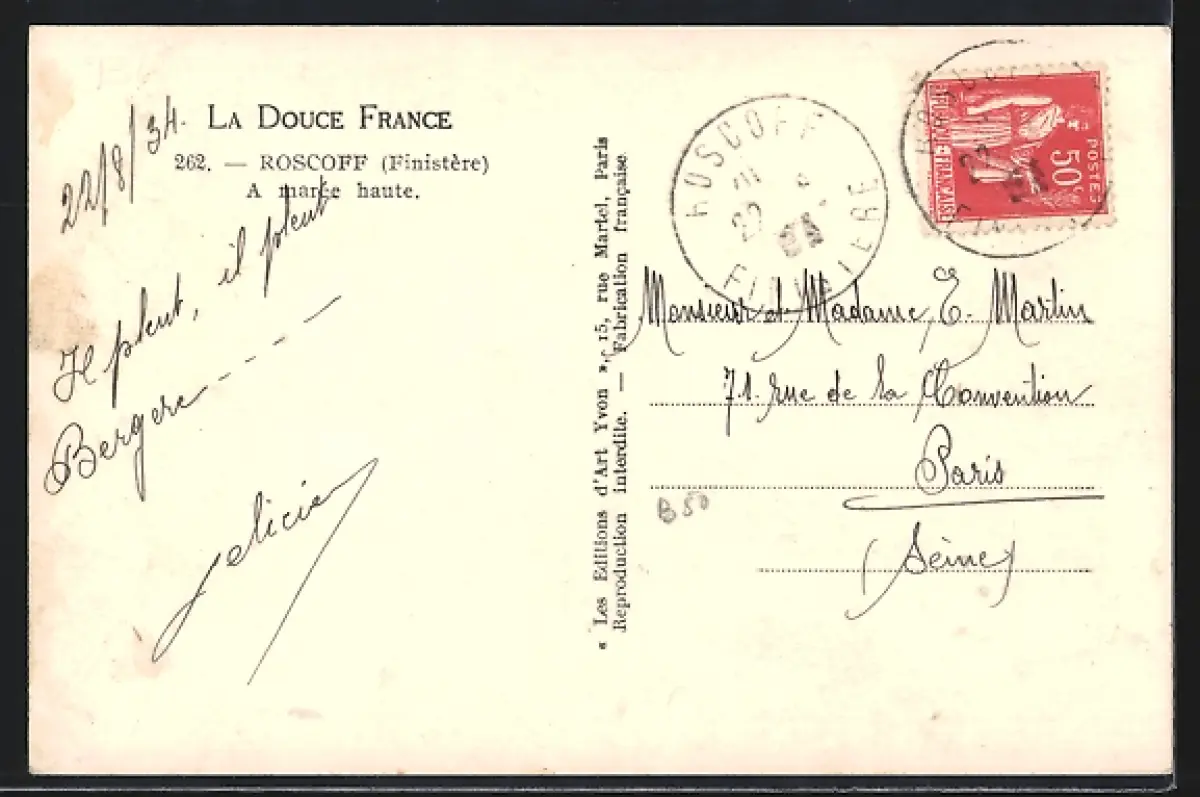 22/8/34.
LA DOUCE FRANCE
262. — ROSCOFF (Finistère)
A marée haute.
Il pleut, il pleut
Bergère - - - - -
Felicie
« Les Editions d'Art Yvon », 15, rue Martel, Paris
Reproduction interdite. — Fabrication française.
ROSCOFF
22
FINISTERE
POSTES
50c
REPUBLIQUE FRANÇAISE
Monsieur et Madame E. Martin
71. rue de la Convention
Paris
(Seine)
B50